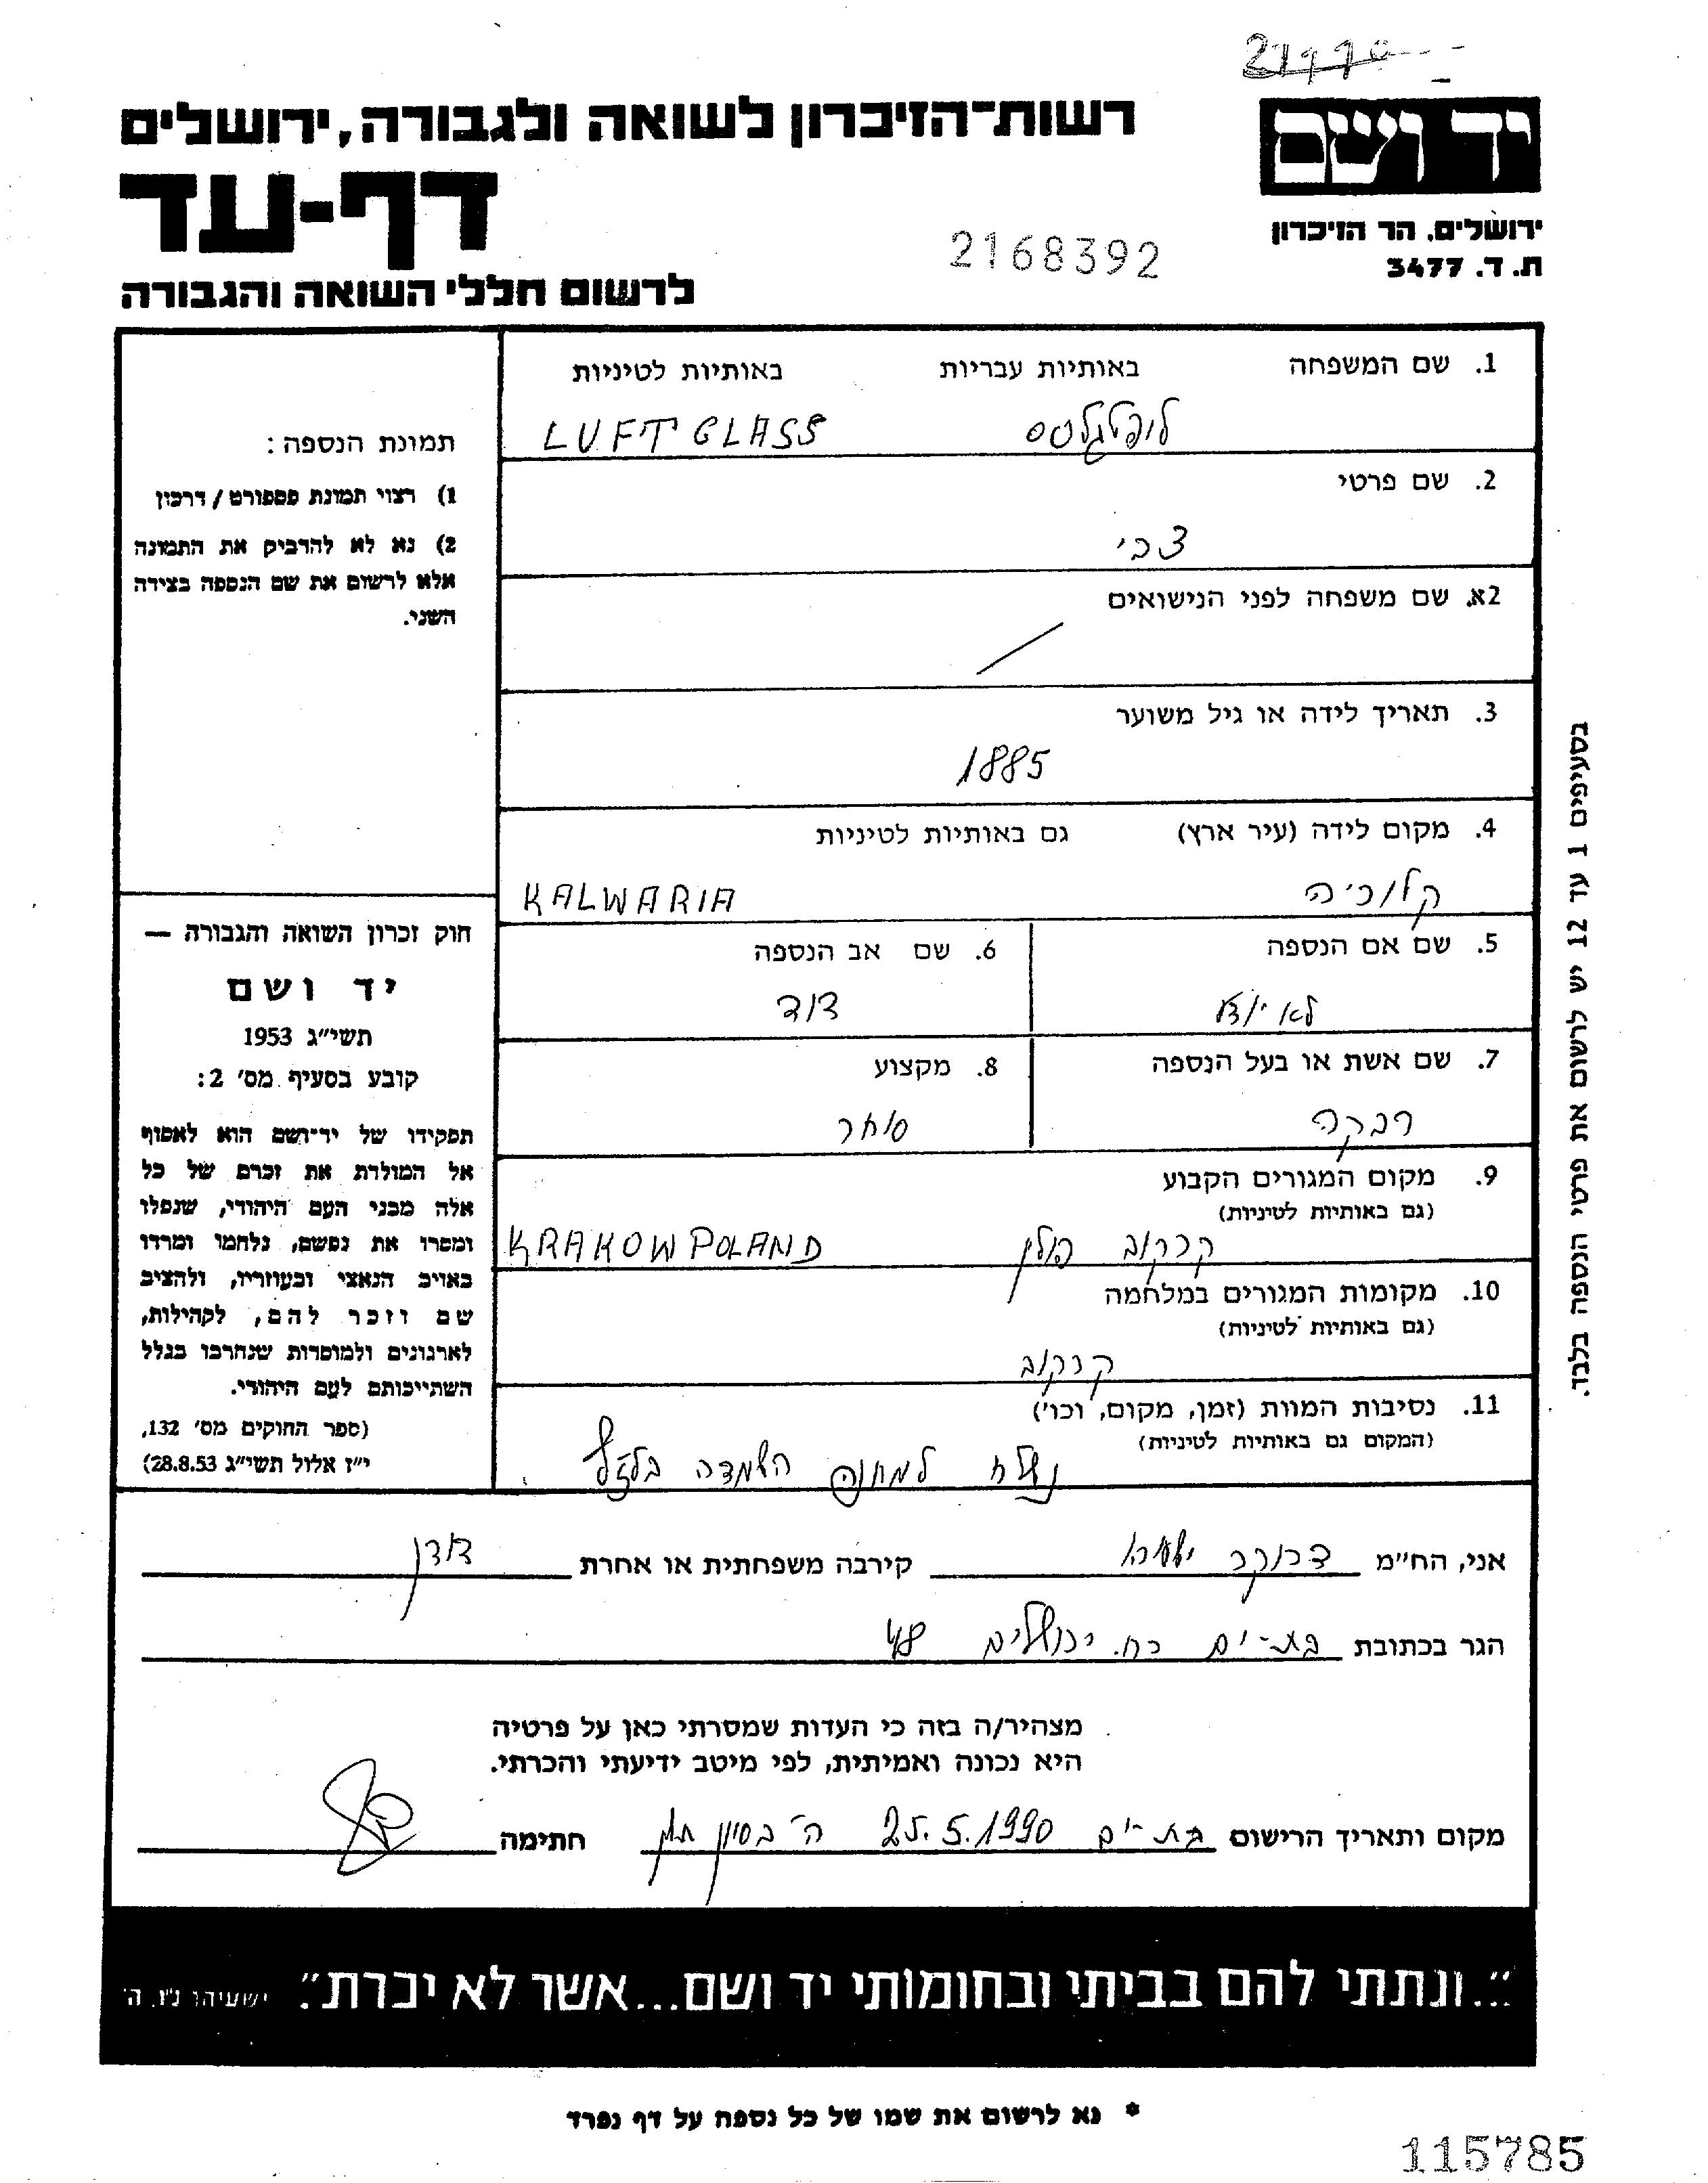 רשות־הזיכרון לשואה ולגבורה, ירושלים
דף-עד
לרשום חללי השואה והגבורה
2168392
יד ושם
ירושלים, הר הזיכרון
ת. ד. 3477
1. שם המשפחה באותיות עבריות באותיות לטיניות
ליפטגלס LUFTGLASS
2. שם פרטי
צבי
2א. שם משפחה לפני הנישואים
3. תאריך לידה או גיל משוער
1885
4. מקום לידה (עיר ארץ) גם באותיות לטיניות
KALWARIA
5. שם אם הנספה
לא יודע
6. שם אב הנספה
דוד
7. שם אשת או בעל הנספה
רבקה
8. מקצוע
סוחר
9. מקום המגורים הקבוע
(גם באותיות לטיניות)
קרקוב פולין KRAKOW POLAND
10. מקומות המגורים במלחמה
(גם באותיות לטיניות)
קרקוב
11. נסיבות המוות (זמן, מקום, וכו')
(המקום גם באותיות לטיניות)
נשלח למחנה השמדה
תמונת הנספה:
1) רצוי תמונת פספורט / דרכון
2) נא לא להדביק את התמונה
אלא לרשום את שם הנספה בצידה
השני.
חוק זכרון השואה והגבורה —
יד ושם
תשי״ג 1953
קובע בסעיף מס׳ 2:
תפקידו של יד־ושם הוא לאסוף
אל המולדת את זכרם של כל
אלה מבני העם היהודי, שנפלו
ומסרו את נפשם, נלחמו ומרדו
באויב הנאצי ובעוזריו, ולהציב
שם וזכר להם, לקהילות,
לארגונים ולמוסדות שנחרבו בגלל
השתייכותם לעם היהודי.
(ספר החוקים מס׳ 132,
י״ז אלול תשי״ג 28.8.53)
בסעיפים 1 עד 12 יש לרשום את פרטי הנספה בלבד.
אני, הח״מ דרוקר קירבה משפחתית או אחרת דודן
הגר בכתובת בת-ים רח. ירושלים 48
מצהיר/ה בזה כי העדות שמסרתי כאן על פרטיה
היא נכונה ואמיתית, לפי מיטב ידיעתי והכרתי.
מקום ותאריך הרישום בת-ים 25.5.1990 ה׳ בסיון חתימה
״...ונתתי להם בביתי ובחומותי יד ושם...אשר לא יכרת״. ישעיהו נ״ו, ה׳
* נא לרשום את שמו של כל נספה על דף נפרד
115785